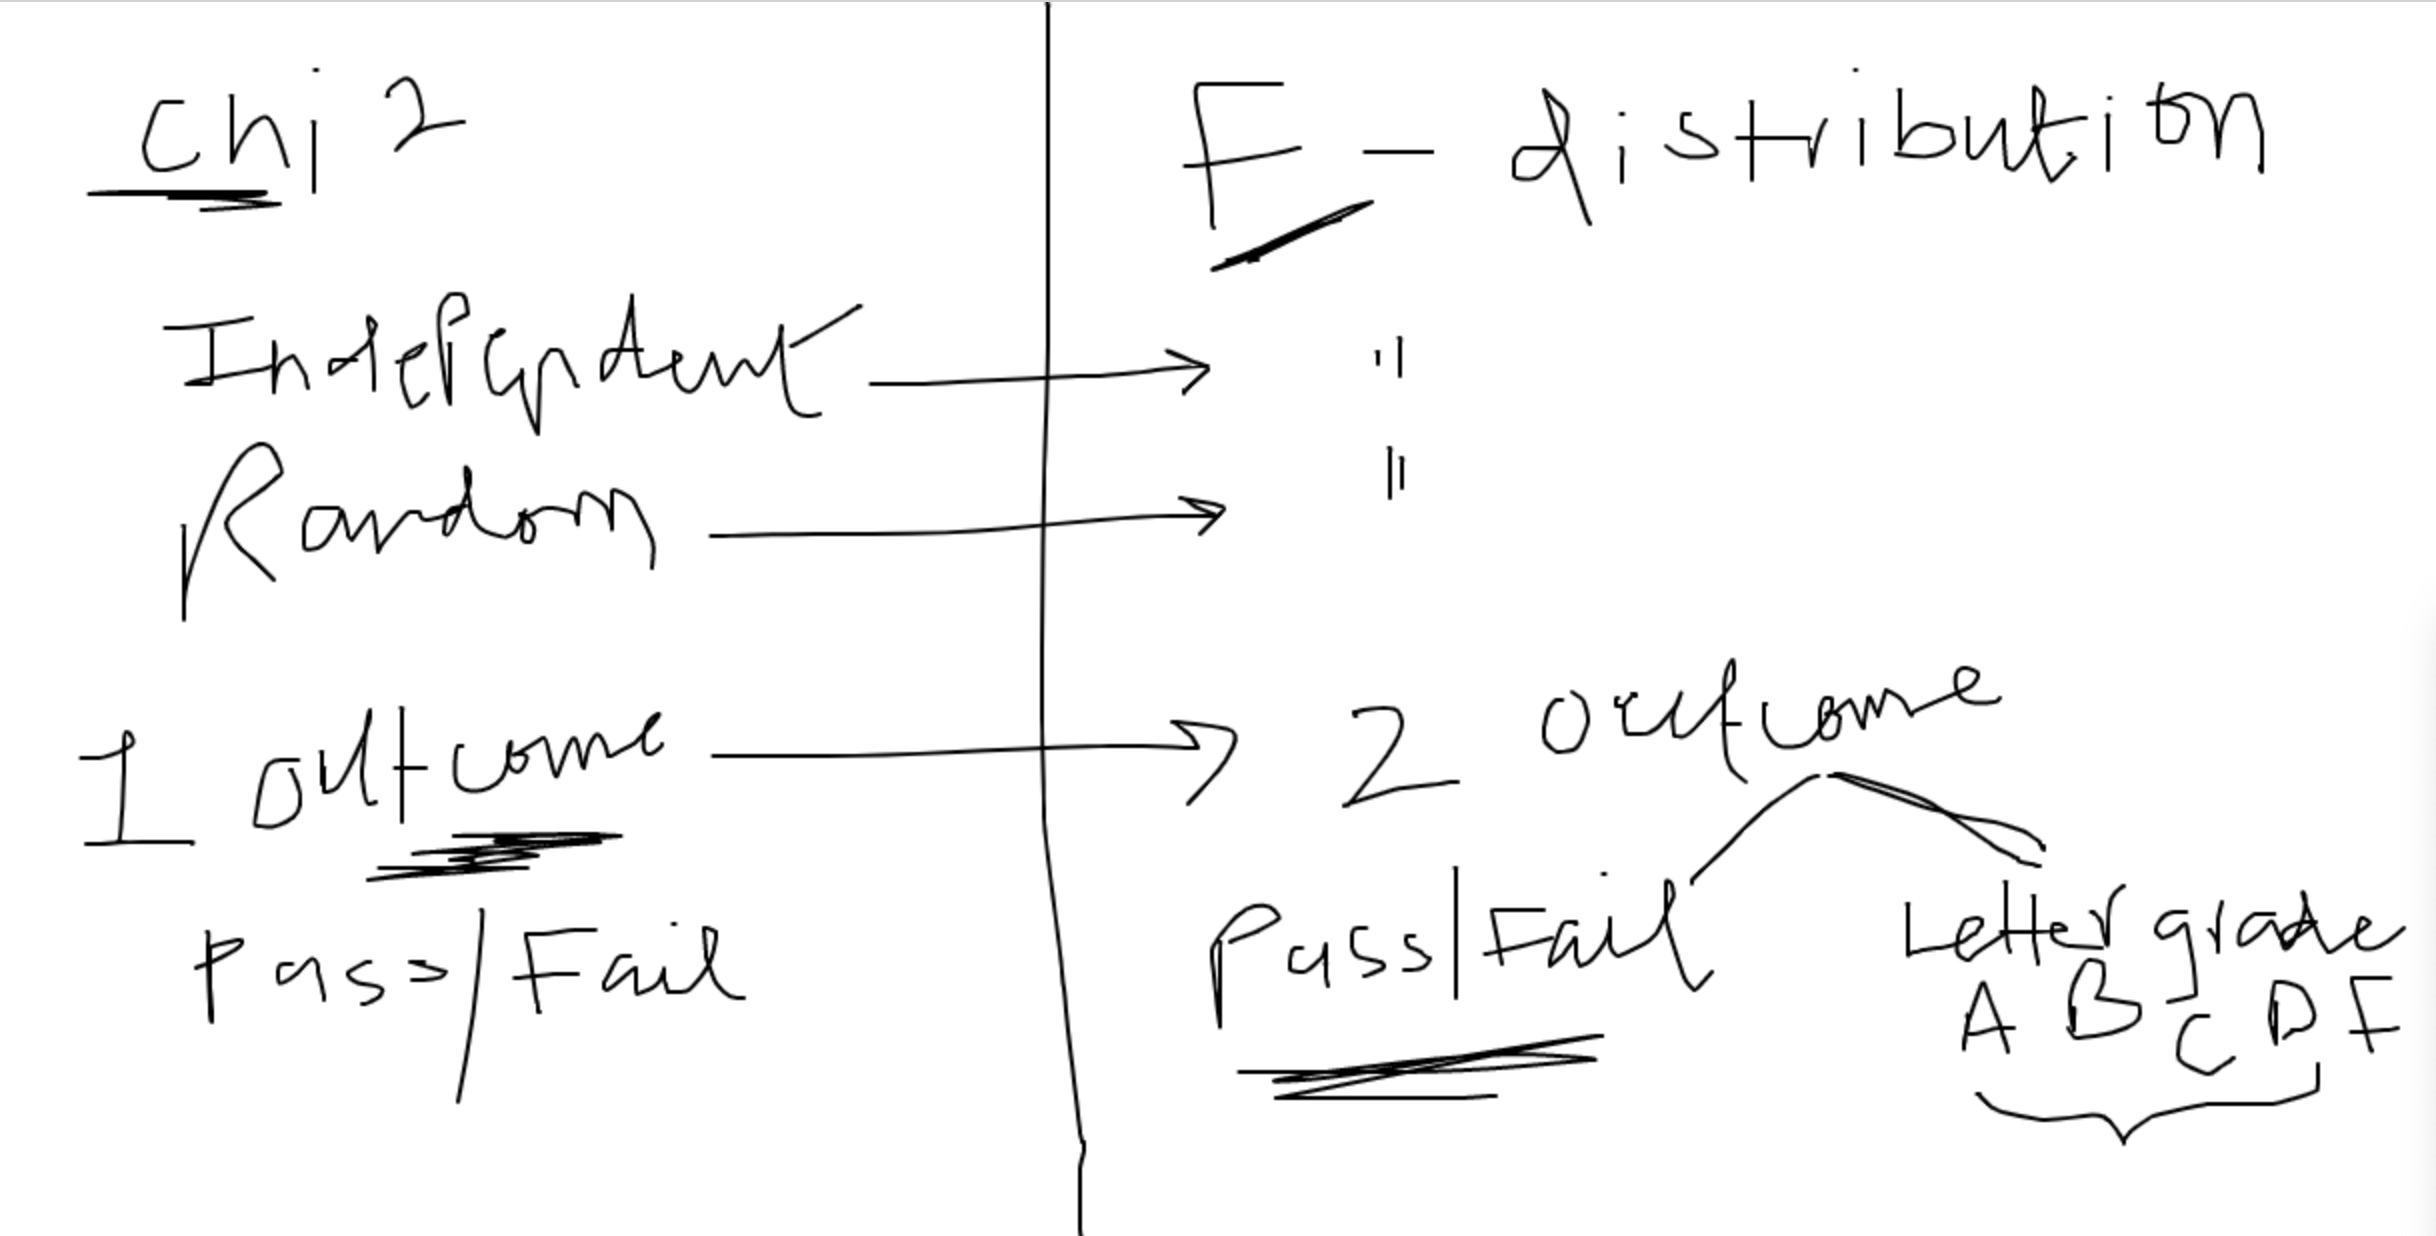 Chi 2
Independent
Random
1 outcome
Pass/Fail
F - distribution
"
"
2 outcome
Pass/Fail
Letter grade
A B C D F